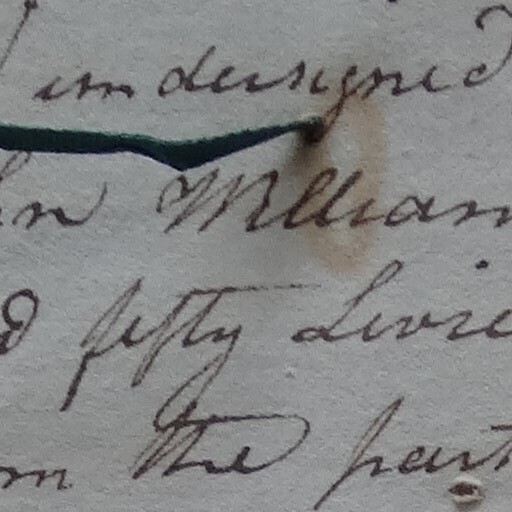 undersigned
hn William
d fifty Livre
m the part